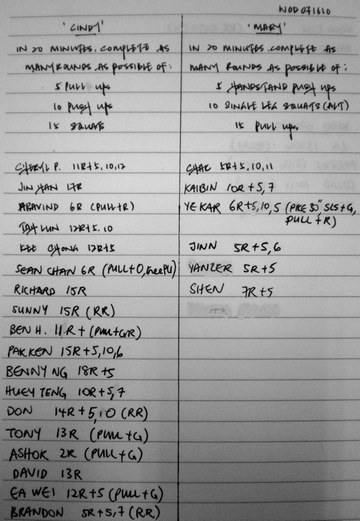 WOD 071610
'CINDY'
IN 20 MINUTES, COMPLETE AS
MANY ROUNDS AS POSSIBLE OF:
5 PULL UPS
10 PUSH UPS
15 SQUATS
CHERYL P. 11R+5,10,12
JIN HAN 17R
ARAVIND 6R (PULL+R)
TAH LUN 12R+5,10
KEE CHONG 12R+5
SEAN CHAN 6R (PULL+O,
RICHARD 15R
SUNNY 15R (RR)
BEN H. 11R + (PULL+GR)
PAK KEN 15R+5,10,6
BENNY NG 18R+5
HUEY TENG 10R+5,7
DON 14R+5,10 (RR)
TONY 13R (PULL+G)
ASHOK 2R (PULL+G)
DAVID 13R
EA WEI 12R+5 (PULL+G)
BRANDON 5R+5,7 (RR)
'MARY'
IN 20 MINUTES COMPLETE AS
MANY ROUNDS AS POSSIBLE OF:
5 HANDSTAND PUSH UPS
10 SINGLE LEG SQUATS (ALT)
15 PULL UPS
5R+5,10,11
KAIBIN 10R+5,7
YE KAR 6R+5,10,5 (PIKE 30" SLS+G,
PULL+R)
JINN 5R+5,6
YANZER 5R+5
SHEN 7R+5